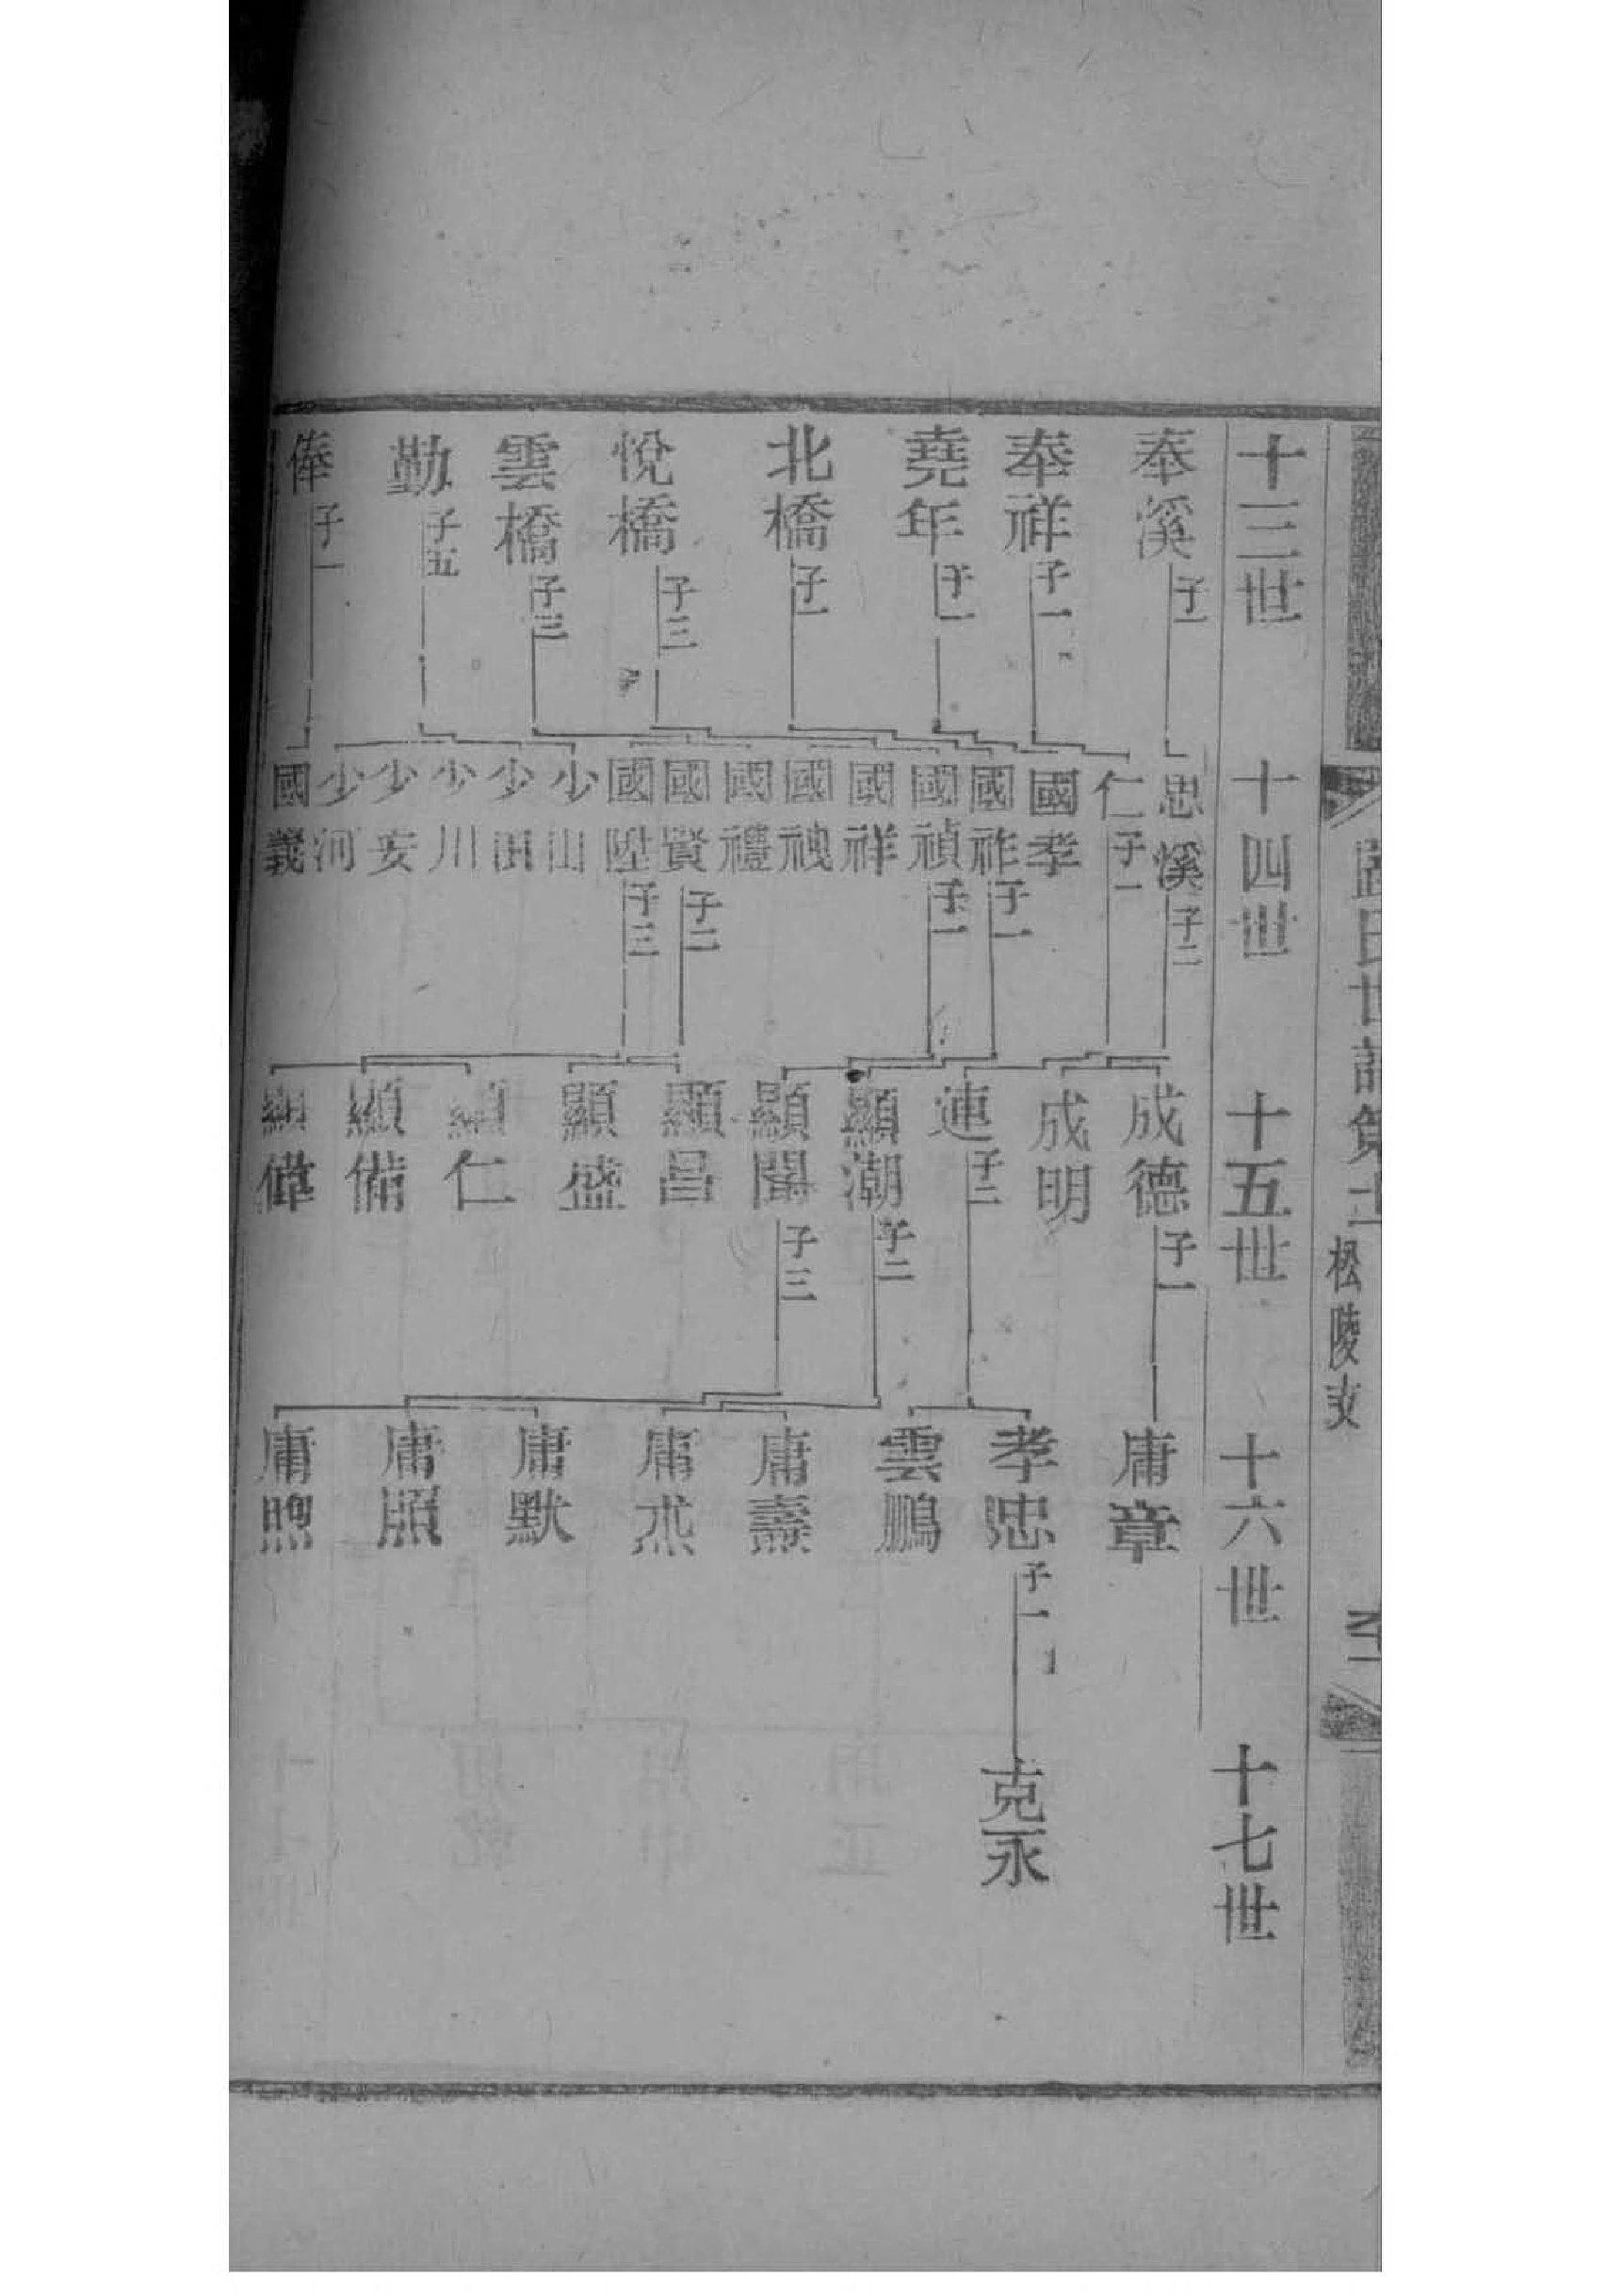 歸氏世譜
松陵支
十三世
奉溪 子一
奉祥 子一
堯年 子一
北橋 子一
悅橋 子三
雲橋 子三
勤 子五
俸 子一
十四世
思溪 子二
仁 子一
國孝
國祚 子一
國禎 子一
國祥
國禮
國賢 子二
國陞 子三
少山
少川
少安
少河
國義
十五世
成德 子一
成明
連 子二
顯潮 子二
顯閣 子三
顯昌
顯盛
顯仁
顯備
顯偉
十六世
庸章
孝忠 子一
雲鵬
庸燾
庸
庸默
庸照
庸煦
十七世
克永